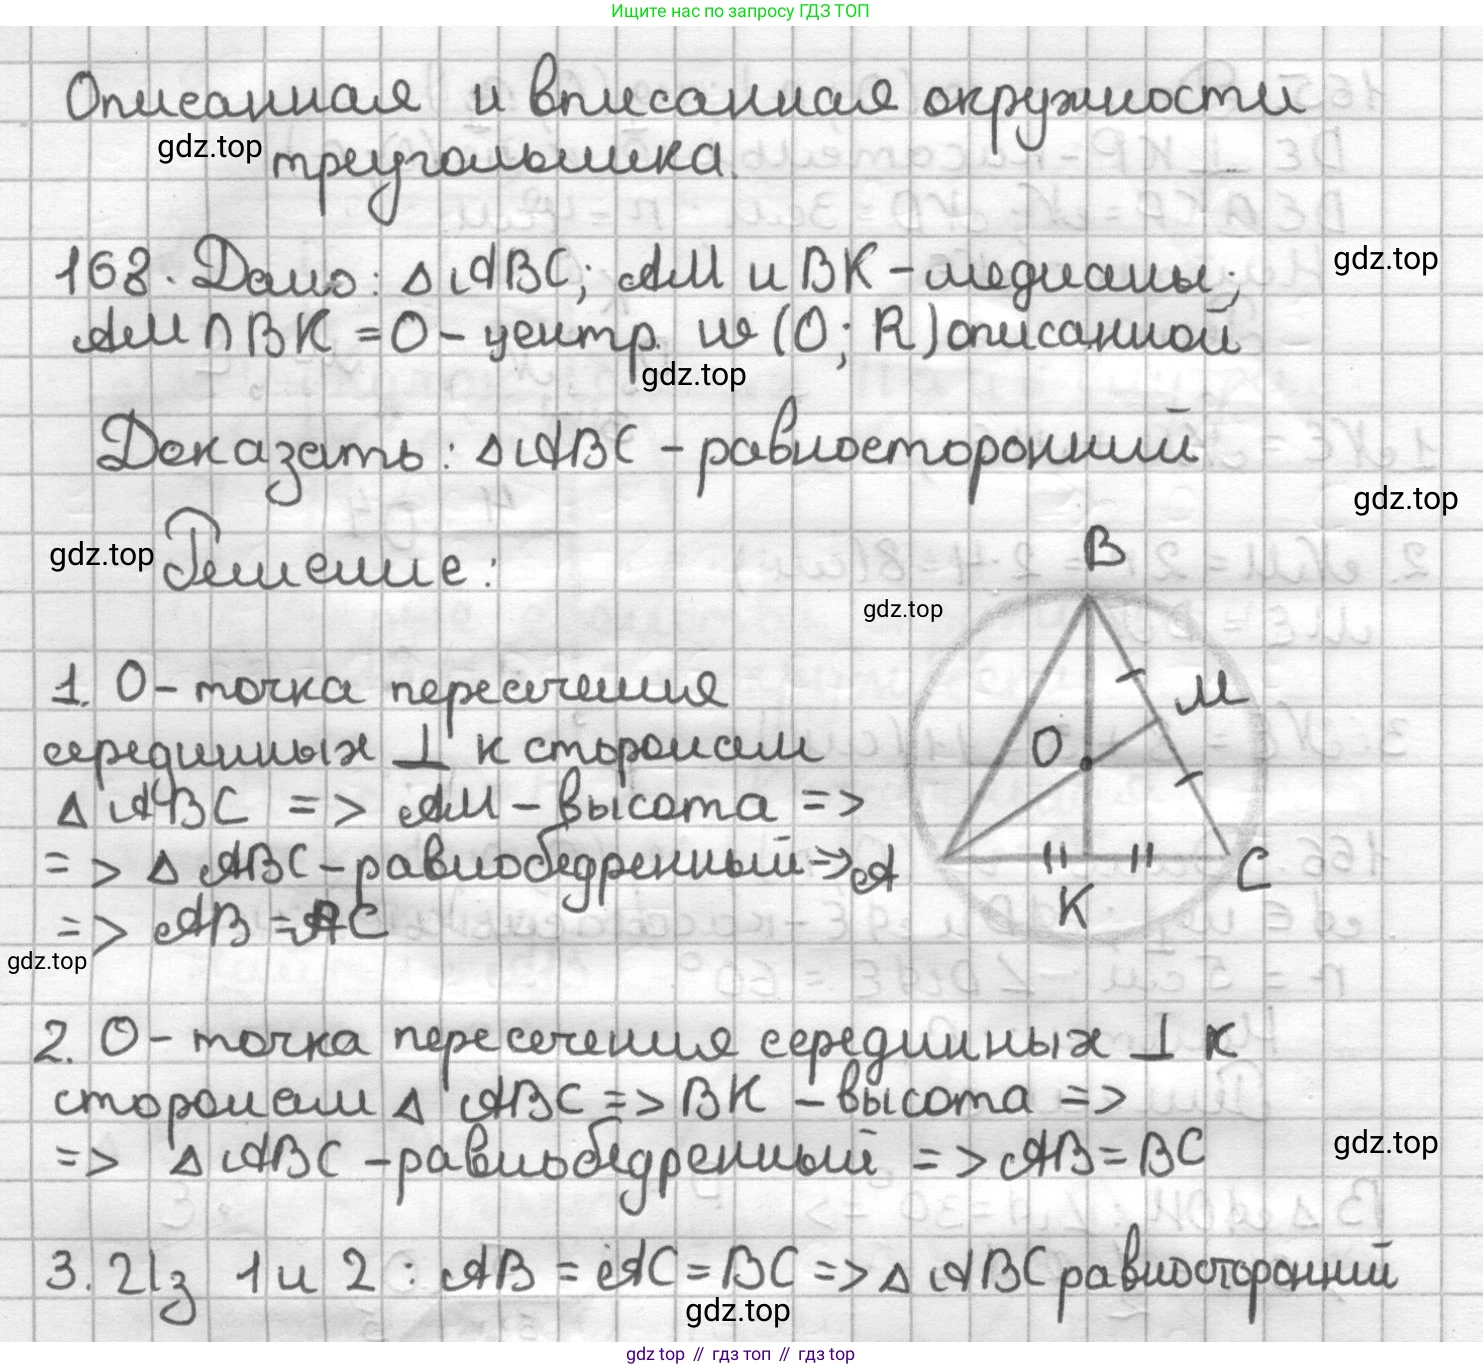 Ищите нас по запросу ГДЗ ТОП
Описанная и вписанная окружности
gdz.top треугольника.
gdz.top
168. Дано: △ABC; AM и BK – медианы;
gdz.top
AM ∩ BK = O – центр. (O; R) описанной
gdz.top
Доказать: △ABC – равносторонний
gdz.top
gdz.top Решение:
B
gdz.top
M
O
A
K
C
1. O – точка пересечения
серединных ⊥ к сторонам
△ ABC => AM – высота =>
=> △ ABC – равнобедренный =>
=> AB = AC
gdz.top
2. O – точка пересечения серединных ⊥ к
сторонам △ ABC => BK – высота =>
=> △ ABC – равнобедренный => AB = BC
gdz.top
3. Из 1 и 2 : AB = AC = BC => △ ABC равносторонний
gdz.top
gdz top // гдз топ // gdz top